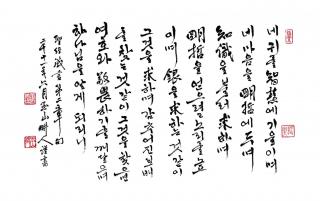 네 귀를 智慧에 기울이며
네 마음을 明哲에 두며
知識을 불러 求하며
明哲을 얻으려고 소리를 높
이며 銀을 求하는 것 같이
그것을 求하며 감추어진 보배
를 찾는 것 같이 그것을 찾으면
여호와 敬畏하기를 깨달으며
하나님을 알게 되리니
聖經 箴言 第二章 句
六月 玉山 人 謹書